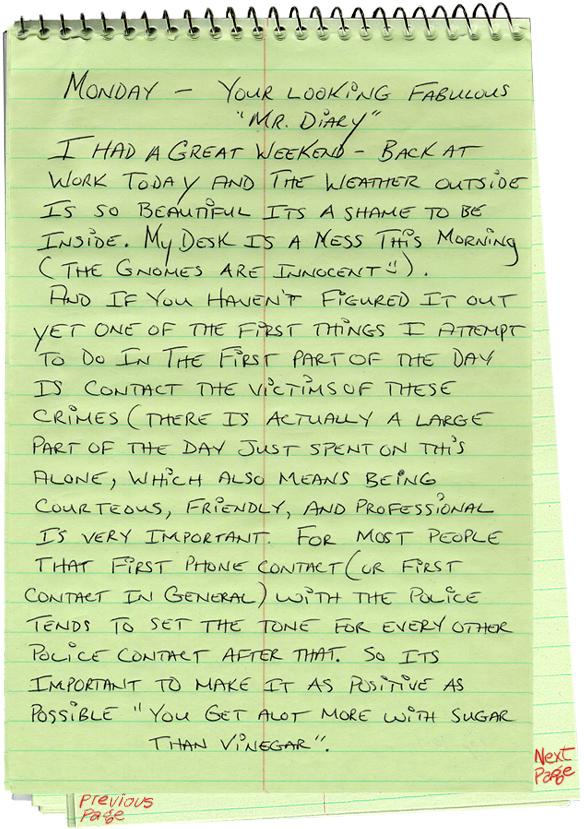 MONDAY - YOUR LOOKING FABULOUS
"MR. DIARY"
I HAD A GREAT WEEKEND - BACK AT
WORK TODAY AND THE WEATHER OUTSIDE
IS SO BEAUTIFUL ITS A SHAME TO BE
INSIDE. MY DESK IS A MESS THIS MORNING
(THE GNOMES ARE INNOCENT☺).
AND IF YOU HAVEN'T FIGURED IT OUT
YET ONE OF THE FIRST THINGS I ATTEMPT
TO DO IN THE FIRST PART OF THE DAY
IS CONTACT THE VICTIMS OF THESE
CRIMES (THERE IS ACTUALLY A LARGE
PART OF THE DAY JUST SPENT ON THIS
ALONE, WHICH ALSO MEANS BEING
COURTEOUS, FRIENDLY, AND PROFESSIONAL
IS VERY IMPORTANT. FOR MOST PEOPLE
THAT FIRST PHONE CONTACT (OR FIRST
CONTACT IN GENERAL) WITH THE POLICE
TENDS TO SET THE TONE FOR EVERY OTHER
POLICE CONTACT AFTER THAT. SO ITS
IMPORTANT TO MAKE IT AS POSITIVE AS
POSSIBLE "YOU GET ALOT MORE WITH SUGAR
THAN VINEGAR".
Next
Page
Previous
Page